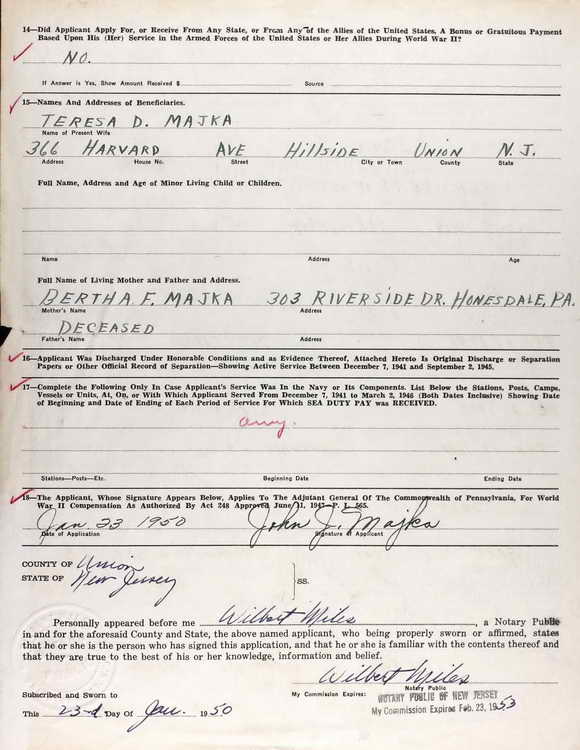 14—Did Applicant Apply For, or Receive From Any State, or From Any of the Allies of the United States, A Bonus or Gratuitous Payment
Based Upon His (Her) Service in the Armed Forces of the United States or Her Allies During World War II?
NO.
If Answer is Yes, Show Amount Received $ Source
15—Names And Addresses of Beneficiaries.
TERESA D. MAJKA
Name of Present Wife
366 HARVARD AVE Hillside UNION N. J.
Address House No. Street City or Town County State
Full Name, Address and Age of Minor Living Child or Children.
Name Address Age
Full Name of Living Mother and Father and Address.
BERTHA F. MAJKA 303 RIVERSIDE DR. HONESDALE, PA.
Mother's Name Address
DECEASED
Father's Name Address
16—Applicant Was Discharged Under Honorable Conditions and as Evidence Thereof, Attached Hereto Is Original Discharge or Separation
Papers or Other Official Record of Separation—Showing Active Service Between December 7, 1941 and September 2, 1945.
17—Complete the Following Only In Case Applicant's Service Was In the Navy or Its Components. List Below the Stations, Posts, Camps,
Vessels or Units, At, On, or With Which Applicant Served From December 7, 1941 to March 2, 1946 (Both Dates Inclusive) Showing Date
of Beginning and Date of Ending of Each Period of Service For Which SEA DUTY PAY was RECEIVED.
Army.
Stations—Posts—Etc. Beginning Date Ending Date
18—The Applicant, Whose Signature Appears Below, Applies To The Adjutant General Of The Commonwealth of Pennsylvania, For World
War II Compensation As Authorized By Act 248 Approved June 11, 1947—P. L. 565.
Jan. 23 1950 John J. Majka
Date of Application Signature of Applicant
COUNTY OF Union
STATE OF New Jersey
SS.
Personally appeared before me Wilbert Miles, a Notary Public
in and for the aforesaid County and State, the above named applicant, who being properly sworn or affirmed, states
that he or she is the person who has signed this application, and that he or she is familiar with the contents thereof and
that they are true to the best of his or her knowledge, information and belief.
Wilbert Miles
Notary Public
My Commission Expires: NOTARY PUBLIC OF NEW JERSEY
My Commission Expires Feb. 23, 1953
Subscribed and Sworn to
This 23-d Day Of Jan. 1950